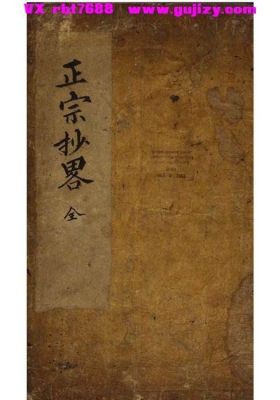 VX rbt7688 www.gujizy.com
正宗抄畧
全